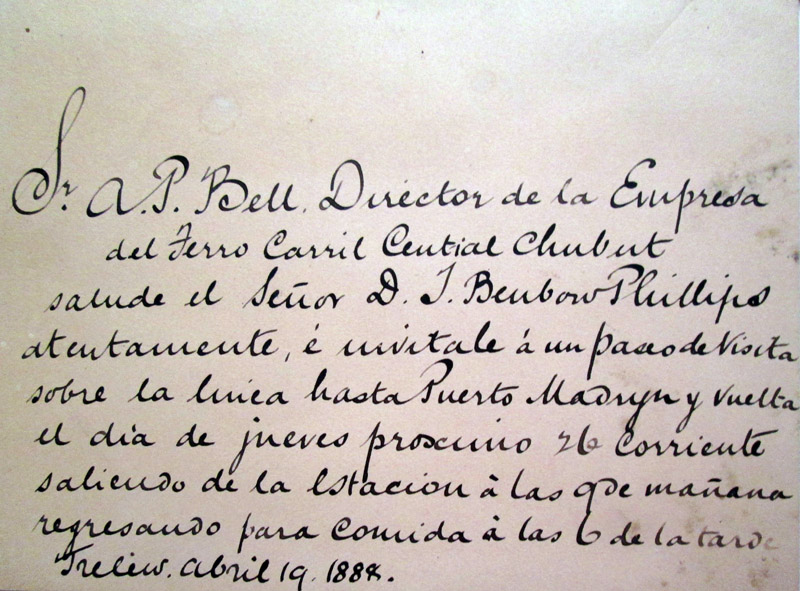 Sr. A. P. Bell. Director de la Empresa
del Ferro Carril Central Chubut
salude el Señor D. J. Benbow Phillips
atentamente, é invitale á un paseo de Visita
sobre la linea hasta Puerto Madryn y vuelta
el dia de jueves proximo 26 corriente
saliendo de la Estacion á las 9 de mañana
regresando para Comida á las 6 de la tarde
Trelew. Abril 19. 1888.